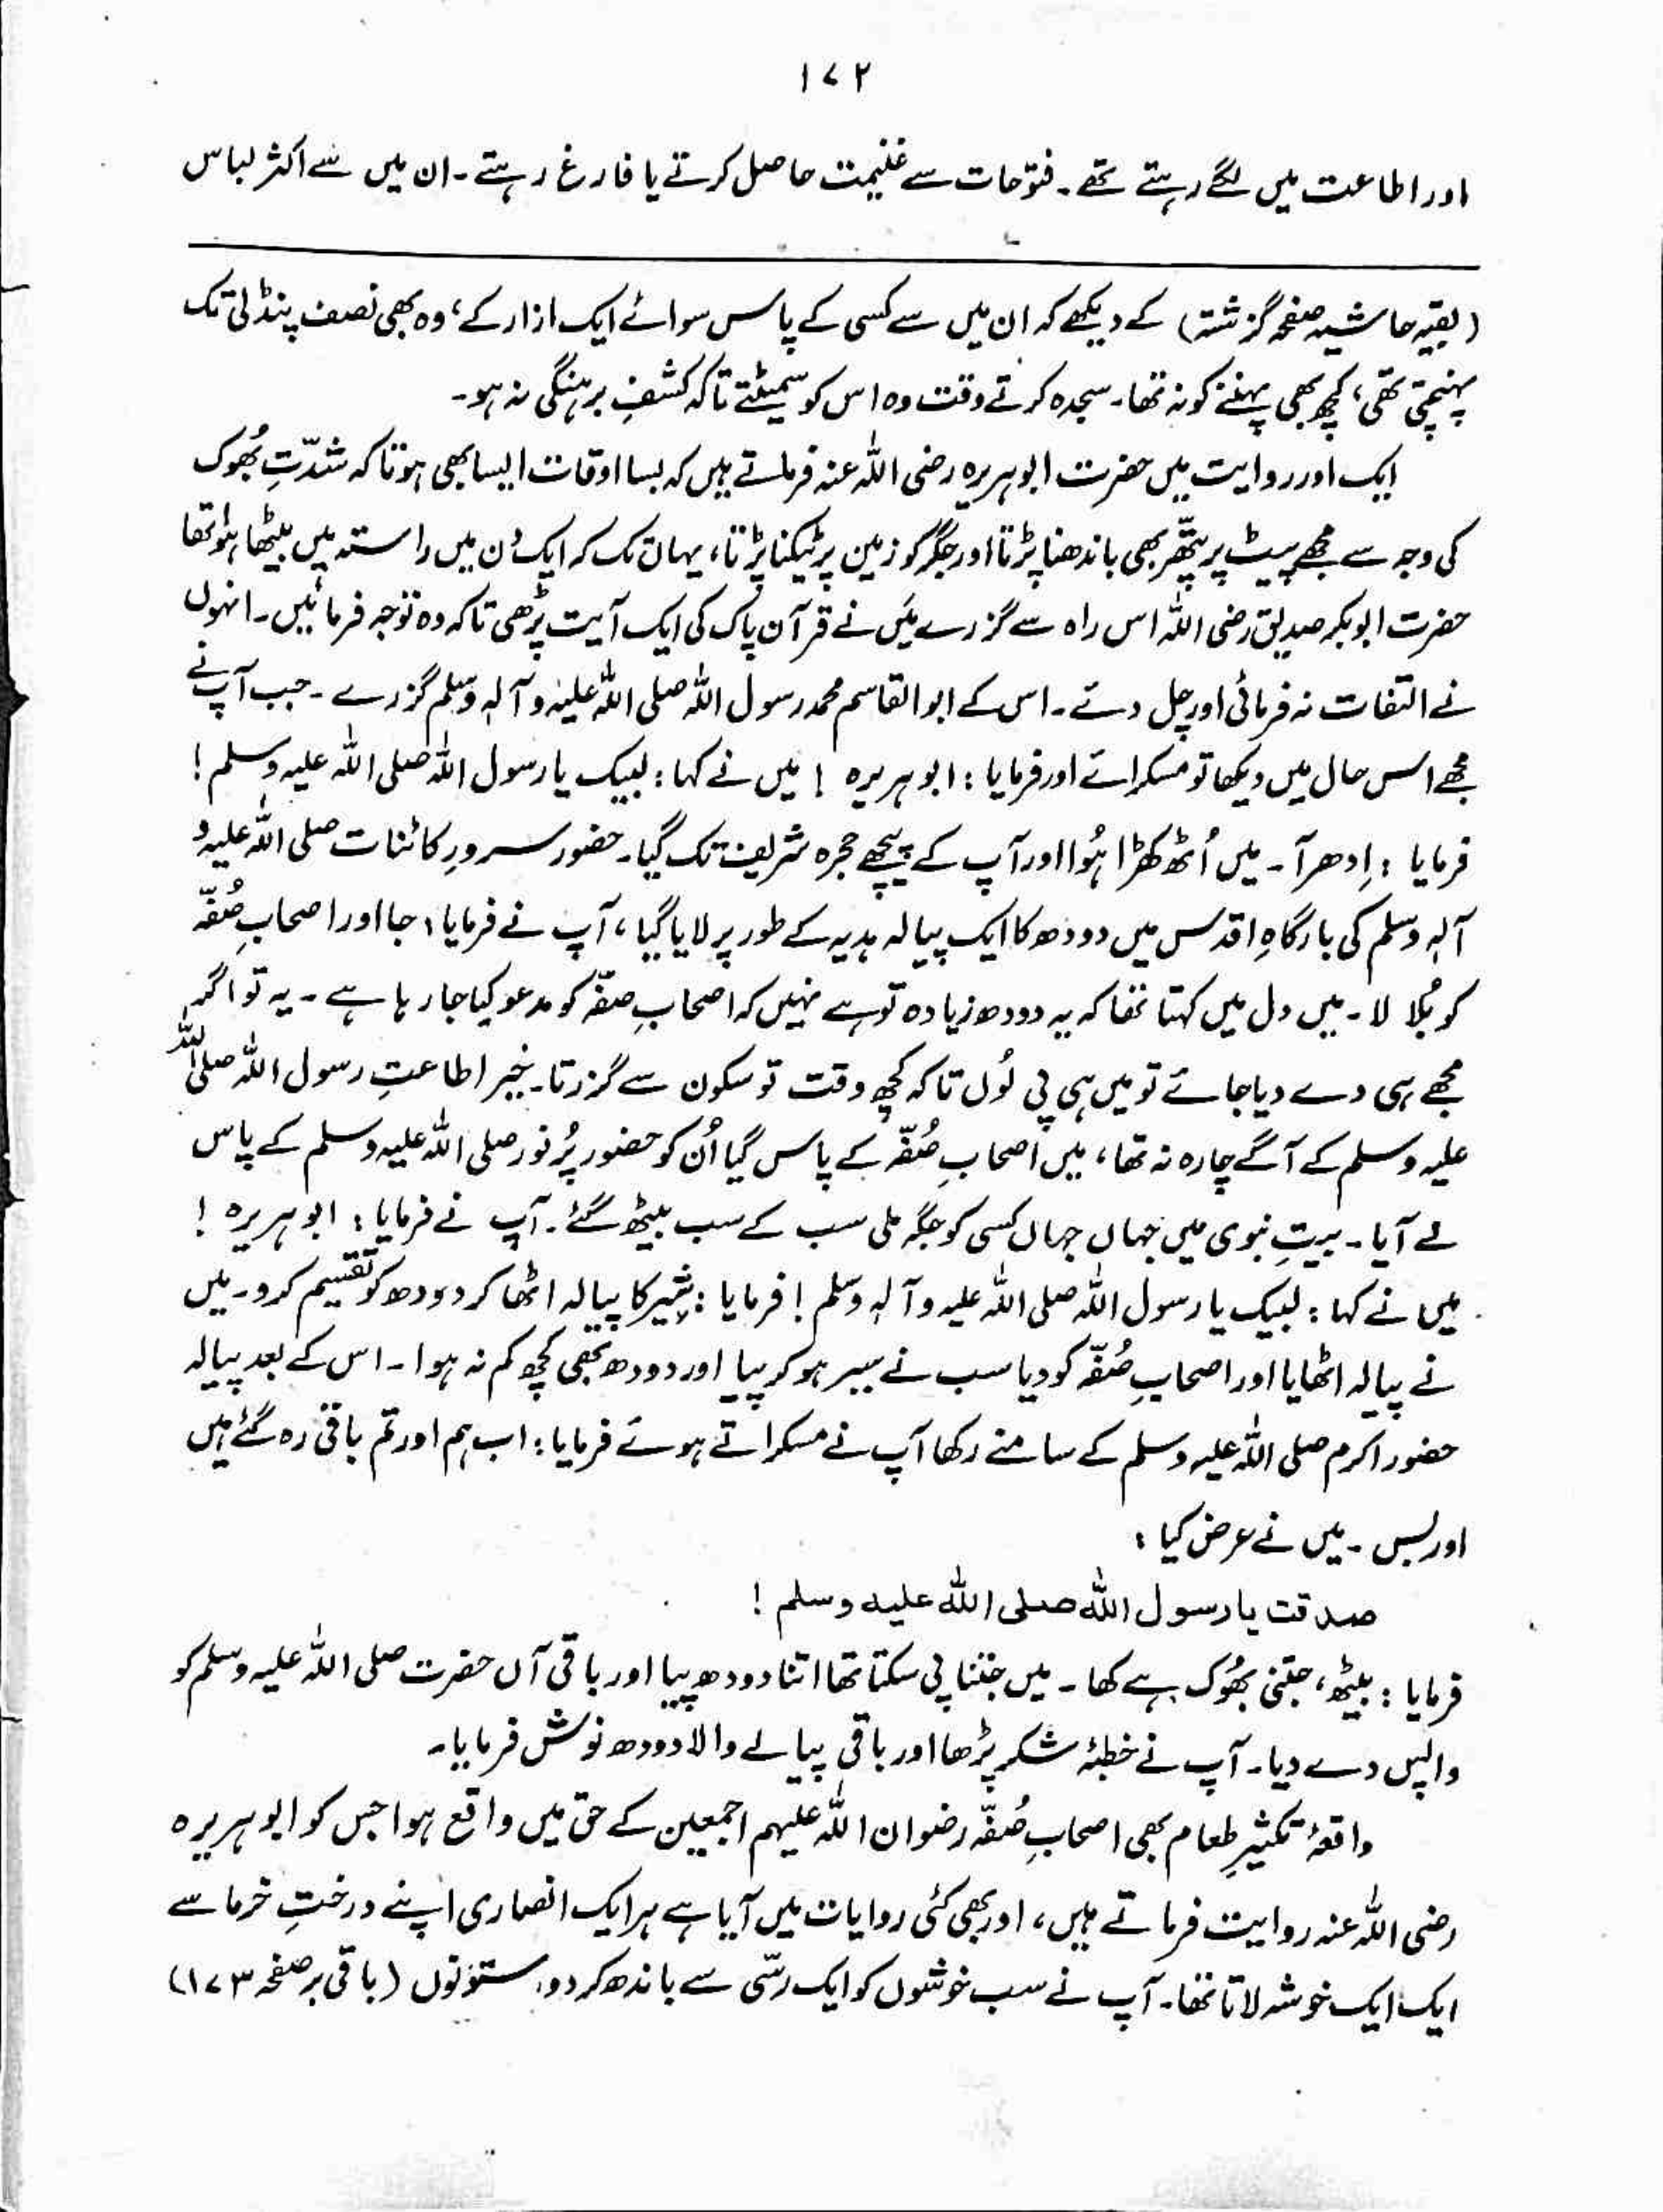 ۱۷۲
اور اطاعت میں لگے رہتے تھے۔ فتوّحات سے غنیمت حاصل کرتے یا فارغ رہتے۔ ان میں سے اکثر لباس
(بقیہ حاشیہ صفحہ گزشتہ) کے دیکھے کہ ان میں سے کسی کے پاس سوائے ایک ازار کے، وہ بھی نصف پنڈلی تک
پہنچتی تھی، کچھ بھی پہننے کو نہ تھا۔ سجدہ کرتے وقت وہ اس کو سمیٹتے تاکہ کشفِ برہنگی نہ ہو۔
ایک اور روایت میں حضرت ابوہریرہ رضی اللہ عنہ فرماتے ہیں کہ بسا اوقات ایسا بھی ہوتا کہ شدّتِ بُھوک
کی وجہ سے مجھے پیٹ پر پتّھر بھی باندھنا پڑتا اور جگر کو زمین پر ٹیکنا پڑتا، یہاں تک کہ ایک دن میں راستہ میں بیٹھا ہُوا تھا
حضرت ابوبکر صدیق رضی اللہ اس راہ سے گزرے میَں نے قرآن پاک کی ایک آیت پڑھی تاکہ وہ توّجہ فرمائیں۔ انہوں
نے التفات نہ فرمائی اور چل دئے۔ اس کے ابوالقاسم محمد رسول اللہ صلی اللہ علیہ وآلہٖ وسلم گزرے۔ جب آپ نے
مجھے اس حال میں دیکھا تو مسکرائے اور فرمایا : ابوہریرہ ! میں نے کہا : لبیک یا رسول اللہ صلی اللہ علیہ وسلم !
فرمایا : اِدھر آ۔ میں اُٹھ کھڑا ہُوا اور آپ کے پیچھے حجرہ شریف تک گیا۔ حضور سرورِ کائنات صلی اللہ علیہ و
آلہٖ وسلم کی بارگاہِ اقدس میں دودھ کا ایک پیالہ ہدیہ کے طور پر لایا گیا، آپ نے فرمایا : جا اور اصحابِ صُفّہ
کو بُلا لا۔ میں دل میں کہتا تھا کہ یہ دودھ زیادہ تو ہے نہیں کہ اصحابِ صفّہ کو مدعو کیا جا رہا ہے۔ یہ تو اگر
مجھے ہی دے دیا جائے تو میں ہی پی لُوں تاکہ کچھ وقت تو سکون سے گزرتا۔ خیر اطاعتِ رسول اللہ صلی اللہ
علیہ وسلم کے آگے چارہ نہ تھا، میں اصحابِ صُفّہ کے پاس گیا اُن کو حضور پُرنور صلی اللہ علیہ وسلم کے پاس
لے آیا۔ بیتِ نبوی میں جہاں جہاں کسی کو جگہ ملی سب کے سب بیٹھ گئے۔ آپ نے فرمایا : ابوہریرہ !
میں نے کہا : لبیک یا رسول اللہ صلی اللہ علیہ وآلہٖ وسلم ! فرمایا : شِیر کا پیالہ اٹھا کر دودھ کو تقسیم کرو۔ میں
نے پیالہ اٹھایا اور اصحابِ صُفّہ کو دیا سب نے سیر ہوکر پیا اور دودھ بھی کچھ کم نہ ہوا۔ اس کے بعد پیالہ
حضور اکرم صلی اللہ علیہ وسلم کے سامنے رکھا آپ نے مسکراتے ہوئے فرمایا : اب ہم اور تم باقی رہ گئے ہیں
اور بس۔ میں نے عرض کیا :
صدقت یا رسول اللہ صلی اللہ علیہ وسلم !
فرمایا : بیٹھ، جتنی بُھوک ہے کھا۔ میں جتنا پی سکتا تھا اتنا دودھ پیا اور باقی آں حضرت صلی اللہ علیہ وسلم کو
واپس دے دیا۔ آپ نے خطبۂ شکر پڑھا اور باقی پیالے والا دودھ نوش فرمایا۔
واقعۂ تکثیرِ طعام بھی اصحابِ صُفّہ رضوان اللہ علیہم اجمعین کے حق میں واقع ہوا جس کو ابوہریرہ
رضی اللہ عنہ روایت فرماتے ہیں، اور بھی کئی روایات میں آیا ہے ہر ایک انصاری اپنے درختِ خرما سے
ایک ایک خوشہ لاتا تھا۔ آپ نے سب خوشوں کو ایک رسّی سے باندھ کر دو ستونوں (باقی بر صفحہ ۱۷۳)